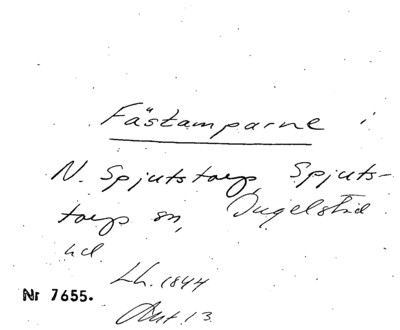 Fästamparne i
N. Spjutstorp, Spjuts-
torps sn, Ingelstad
hd.
Lh. 1844
Nr 7655.
13